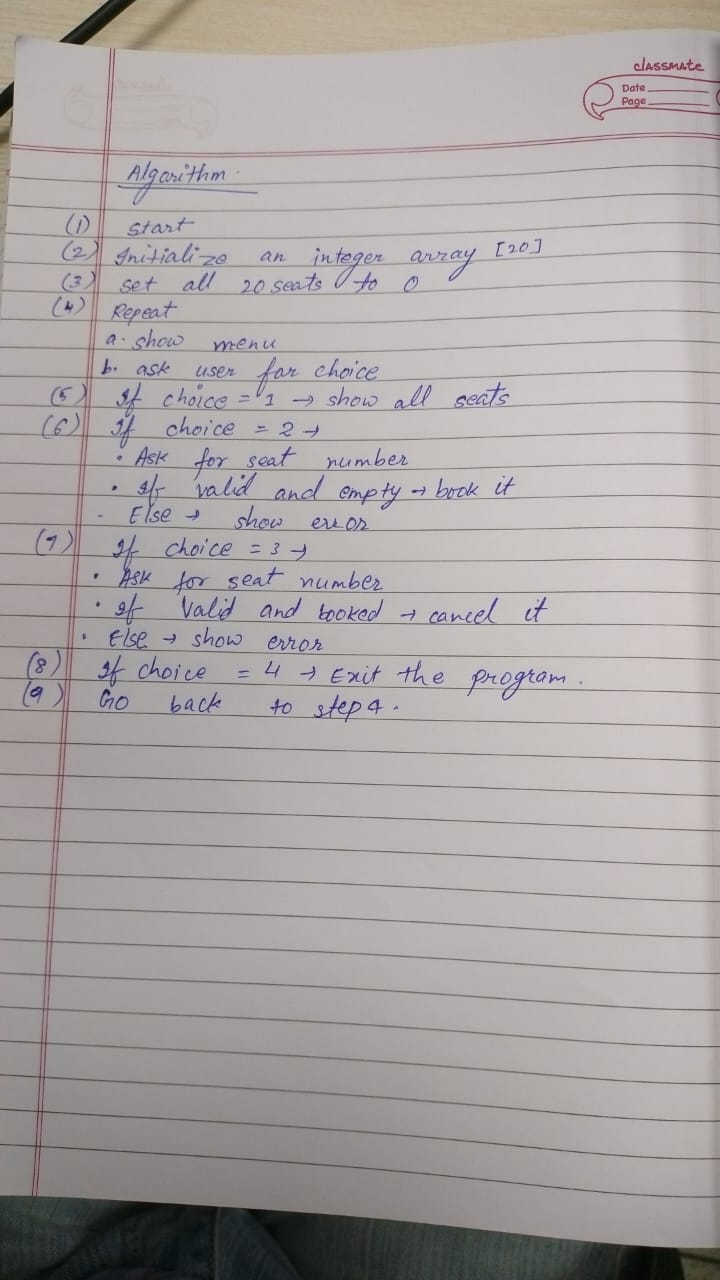 classmate
Date
Page
Algorithm.
(1) Start
(2) Initialize an integer array [20]
(3) set all 20 seats to 0
(4) Repeat
a. show menu
b. ask user for choice
(5) If choice = 1 → show all seats
(6) If choice = 2 →
• Ask for seat number
• If valid and empty → book it
- Else → show error
(7) If choice = 3 →
• Ask for seat number
• If Valid and booked → cancel it
• Else → show error
(8) If choice = 4 → Exit the program.
(9) Go back to step 4.